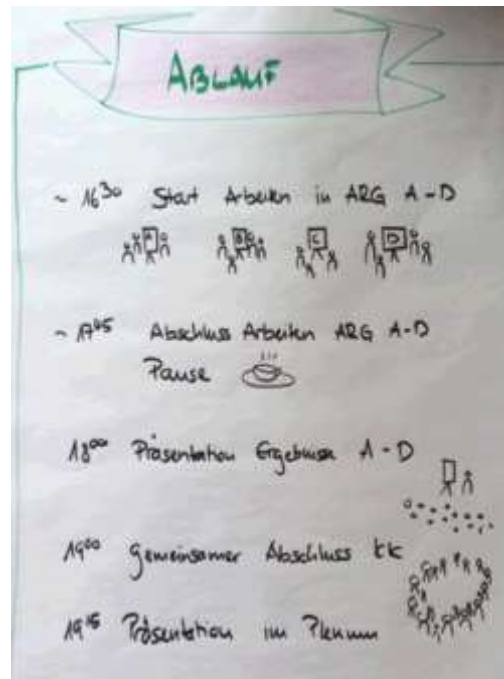 ABLAUF
~ 16³⁰ Start Arbeiten in ARG A-D
A B C D
~ 17⁴⁵ Abschluss Arbeiten ARG A-D
Pause
18⁰⁰ Präsentation Ergebnisse A-D
19⁰⁰ Gemeinsamer Abschluss KK
19¹⁵ Präsentation im Plenum